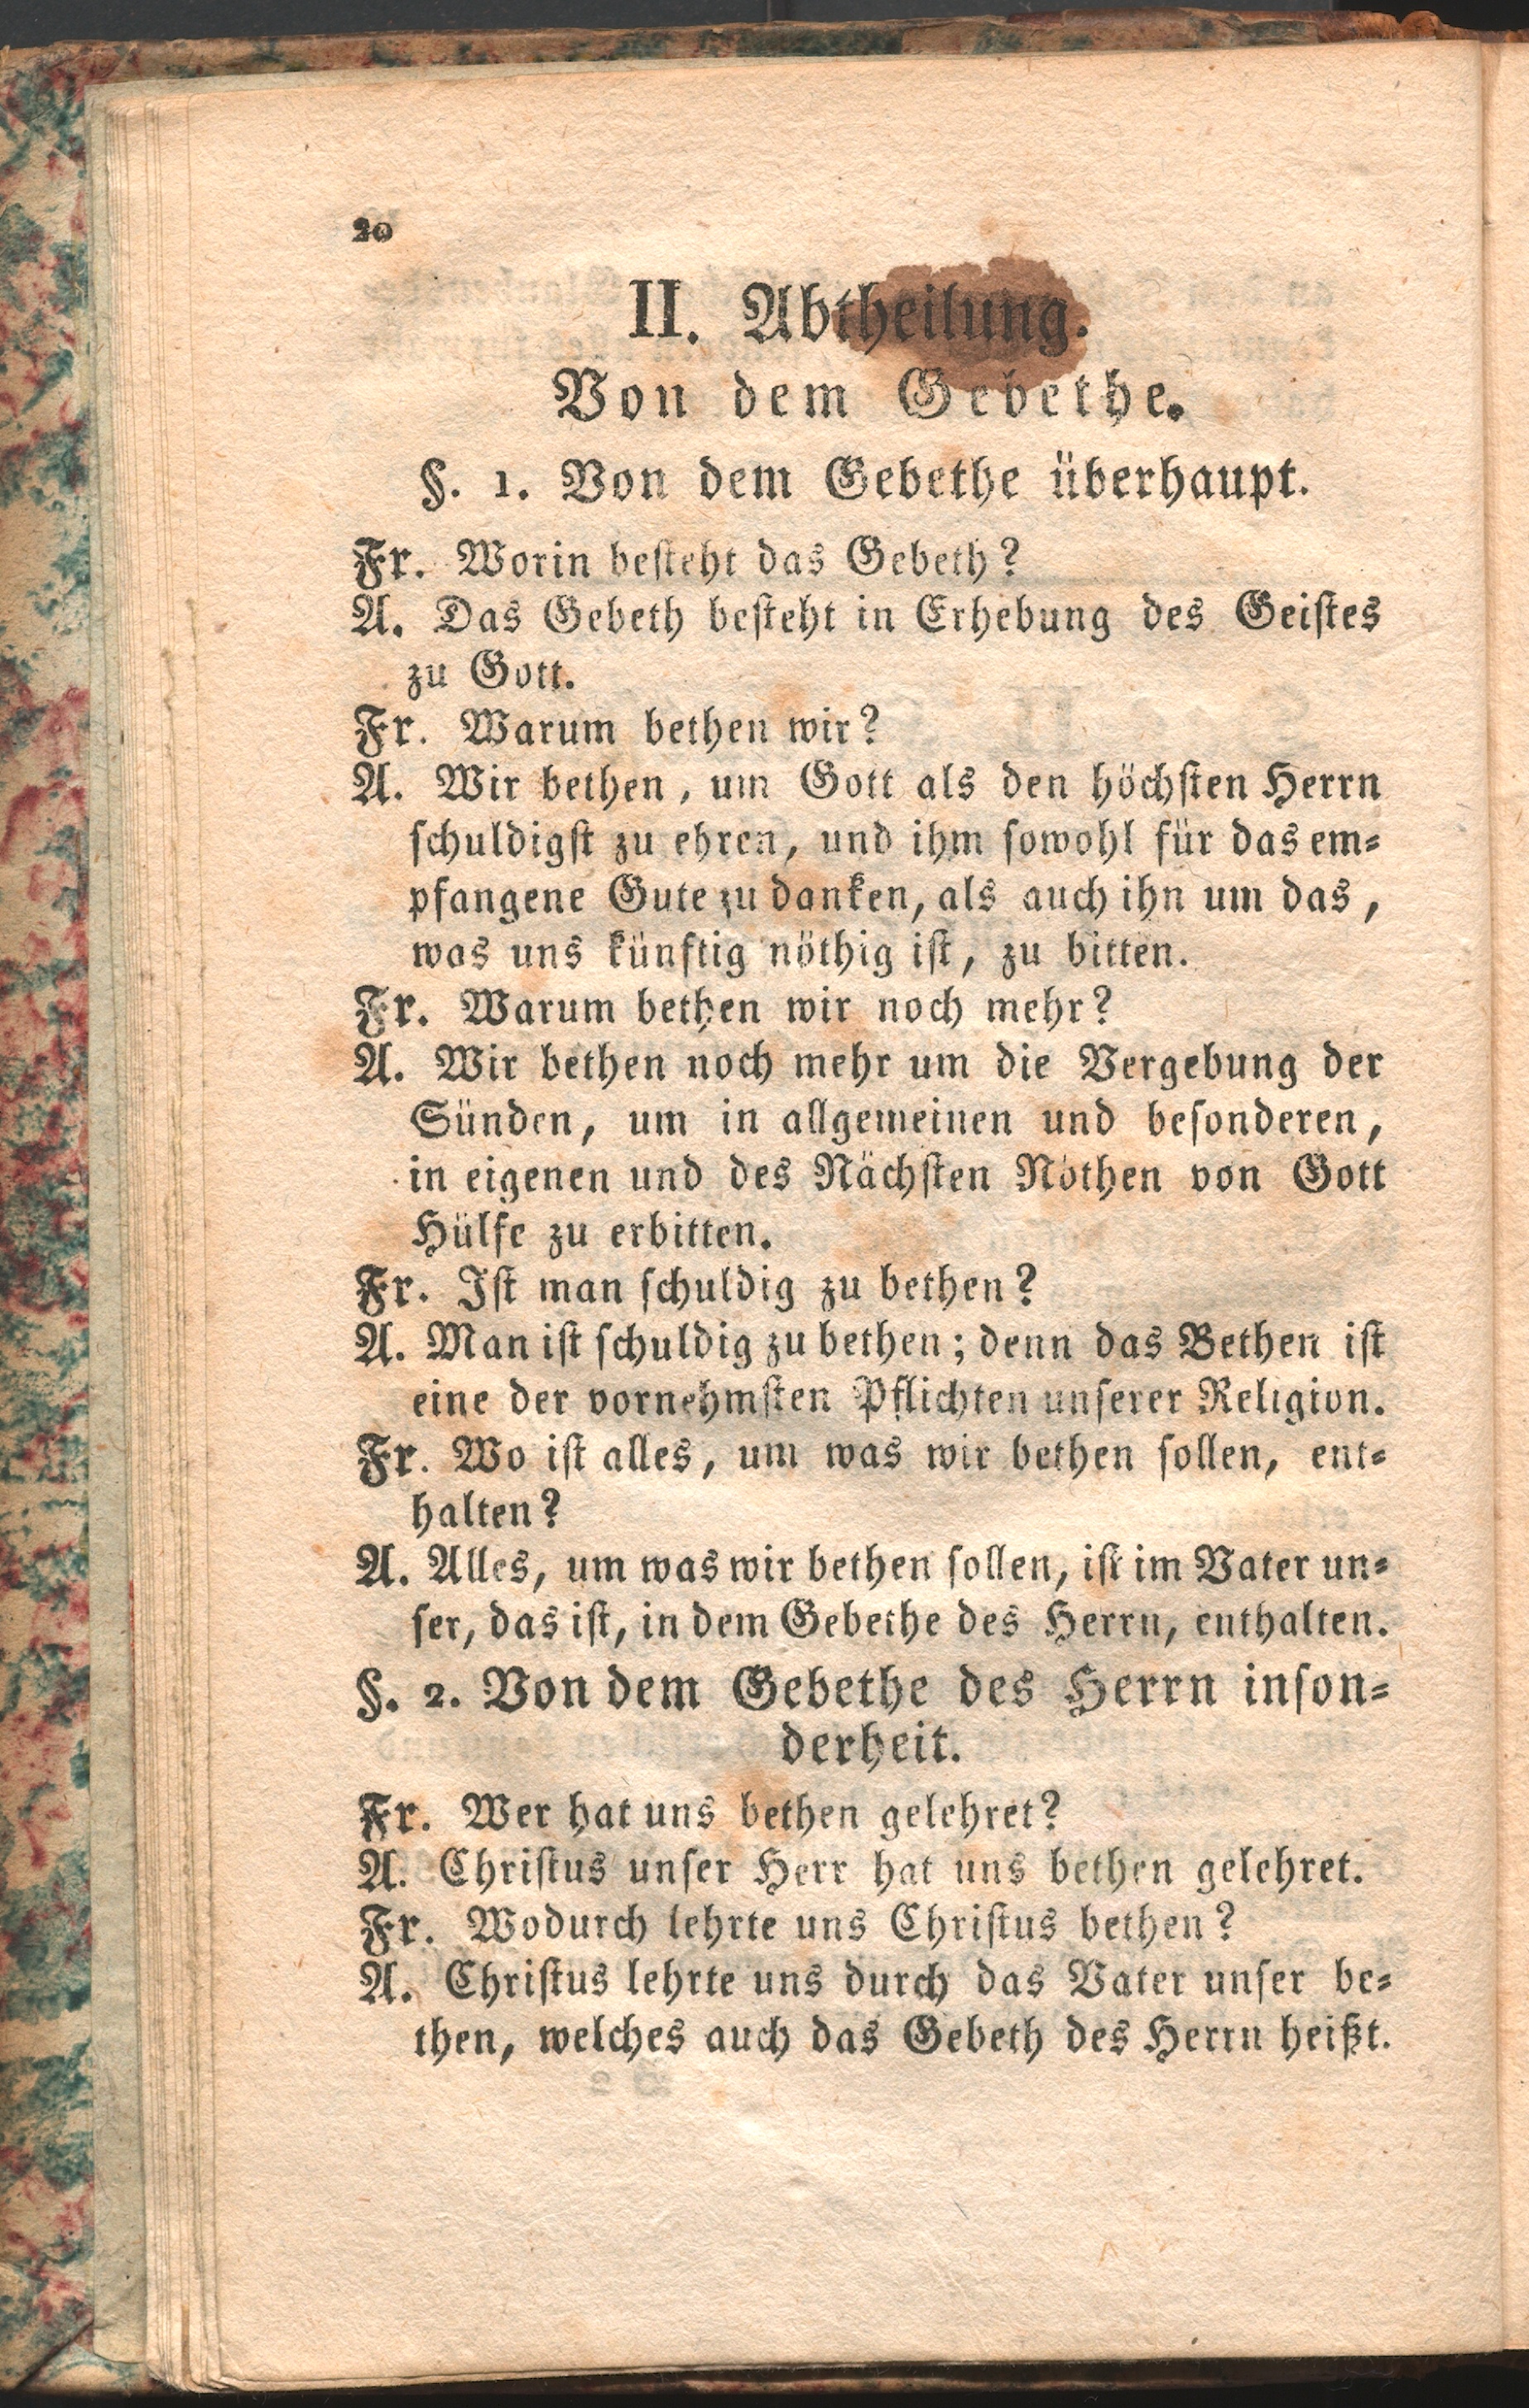 20
II. Abtheilung.
Von dem Gebethe.
§. 1. Von dem Gebethe überhaupt.
Fr. Worin besteht das Gebeth?
A. Das Gebeth besteht in Erhebung des Geistes
zu Gott.
Fr. Warum bethen wir?
A. Wir bethen, um Gott als den höchsten Herrn
schuldigst zu ehren, und ihm sowohl für das em-
pfangene Gute zu danken, als auch ihn um das,
was uns künftig nöthig ist, zu bitten.
Fr. Warum bethen wir noch mehr?
A. Wir bethen noch mehr um die Vergebung der
Sünden, um in allgemeinen und besonderen,
in eigenen und des Nächsten Nöthen von Gott
Hülfe zu erbitten.
Fr. Ist man schuldig zu bethen?
A. Man ist schuldig zu bethen; denn das Bethen ist
eine der vornehmsten Pflichten unserer Religion.
Fr. Wo ist alles, um was wir bethen sollen, ent-
halten?
A. Alles, um was wir bethen sollen, ist im Vater un-
ser, das ist, in dem Gebethe des Herrn, enthalten.
§. 2. Von dem Gebethe des Herrn inson-
derheit.
Fr. Wer hat uns bethen gelehret?
A. Christus unser Herr hat uns bethen gelehret.
Fr. Wodurch lehrte uns Christus bethen?
A. Christus lehrte uns durch das Vater unser be-
then, welches auch das Gebeth des Herrn heißt.